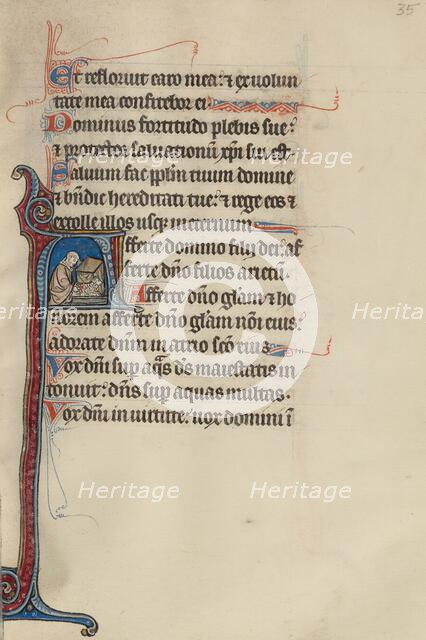 35
Et refloruit caro mea: et ex volun
tate mea confitebor ei
Dominus fortitudo plebis sue:
et protector saluationū xp̄i sui est
Saluum fac pp̄lm tuum domine
et bn̄dic hereditati tue: et rege eos et
extolle illos usq; in eternum
Afferte domino filii dei: af
ferte dn̄o filios arietū
Afferte dn̄o gl̄am et ho
norem afferte dn̄o gl̄am nōi eius:
adorate dnm in atrio scō eius
Vox dn̄i sup aq̄s ds̄ maiestatis in
tonuit: dn̄s sup aquas multas.
Vox dn̄i in uirtute: uox domini ī
Heritage
Heritage
Heritage
Heritage
Heritage
Heritage
Heritage